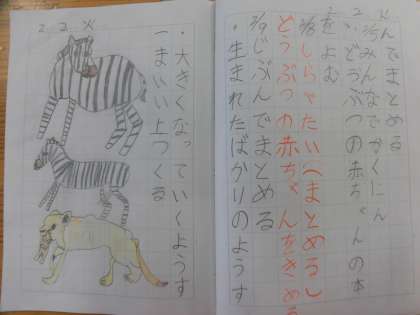 んでまとめる
みんなでかくにん
いどうぶつの赤ちゃんの本
をよむ
しらべたい(まとめる)
どうぶつの赤ちゃんをきめる
じぶんでまとめる
・生まれたばかりのようす
・大きくなっていくようす
一まいい上つくる
2. 2. 火